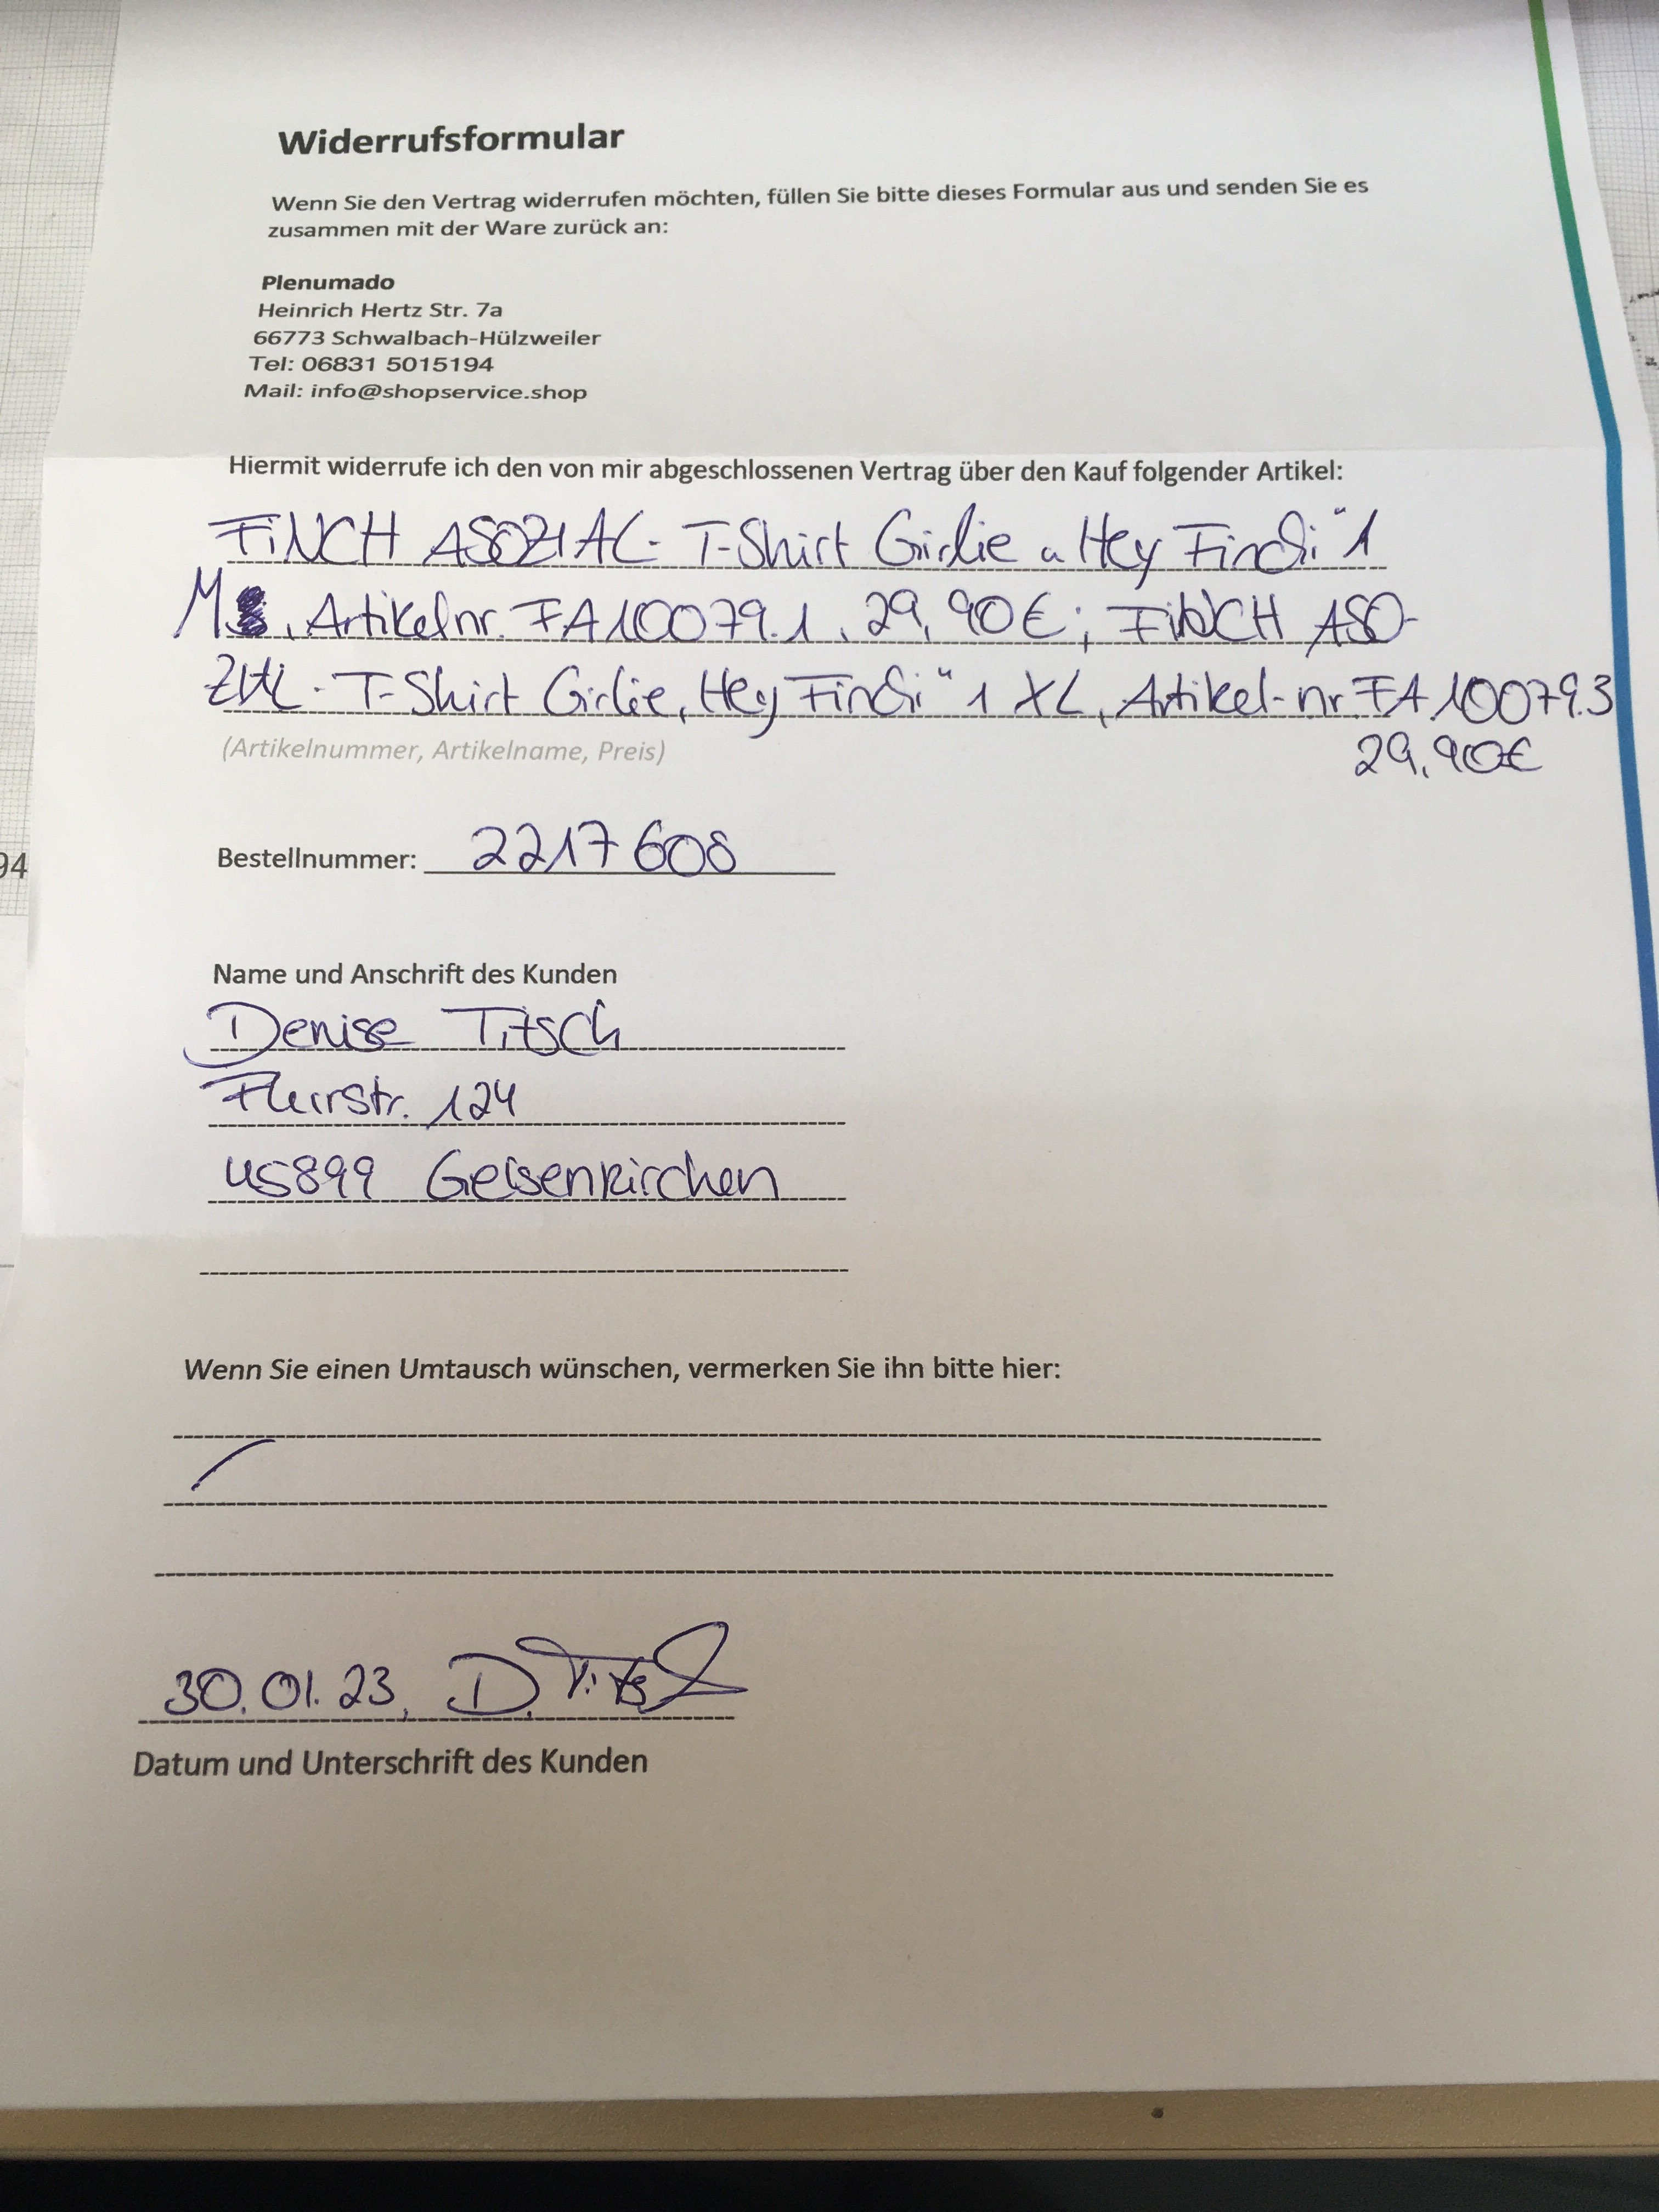 Widerrufsformular
Wenn Sie den Vertrag widerrufen möchten, füllen Sie bitte dieses Formular aus und senden Sie es
zusammen mit der Ware zurück an:
Plenumado
Heinrich Hertz Str. 7a
66773 Schwalbach-Hülzweiler
Tel: 06831 5015194
Mail: info@shopservice.shop
Hiermit widerrufe ich den von mir abgeschlossenen Vertrag über den Kauf folgender Artikel:
FiNCH ASOZIAL - T-Shirt Girlie „Hey Finchi“ 1
M, Artikelnr. FA10079.1, 29,90€; FiNCH ASO-
ZIAL - T-Shirt Girlie „Hey Finchi“ 1 XL, Artikel-nr. FA10079.3
29,90€
(Artikelnummer, Artikelname, Preis)
Bestellnummer: 2217608
94
Name und Anschrift des Kunden
Denise Titsch
Flurstr. 124
45899 Gelsenkirchen
Wenn Sie einen Umtausch wünschen, vermerken Sie ihn bitte hier:
30.01.23, D. Titsch
Datum und Unterschrift des Kunden